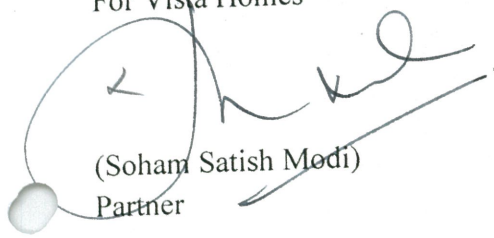 For Vista Homes
(Soham Satish Modi)
Partner